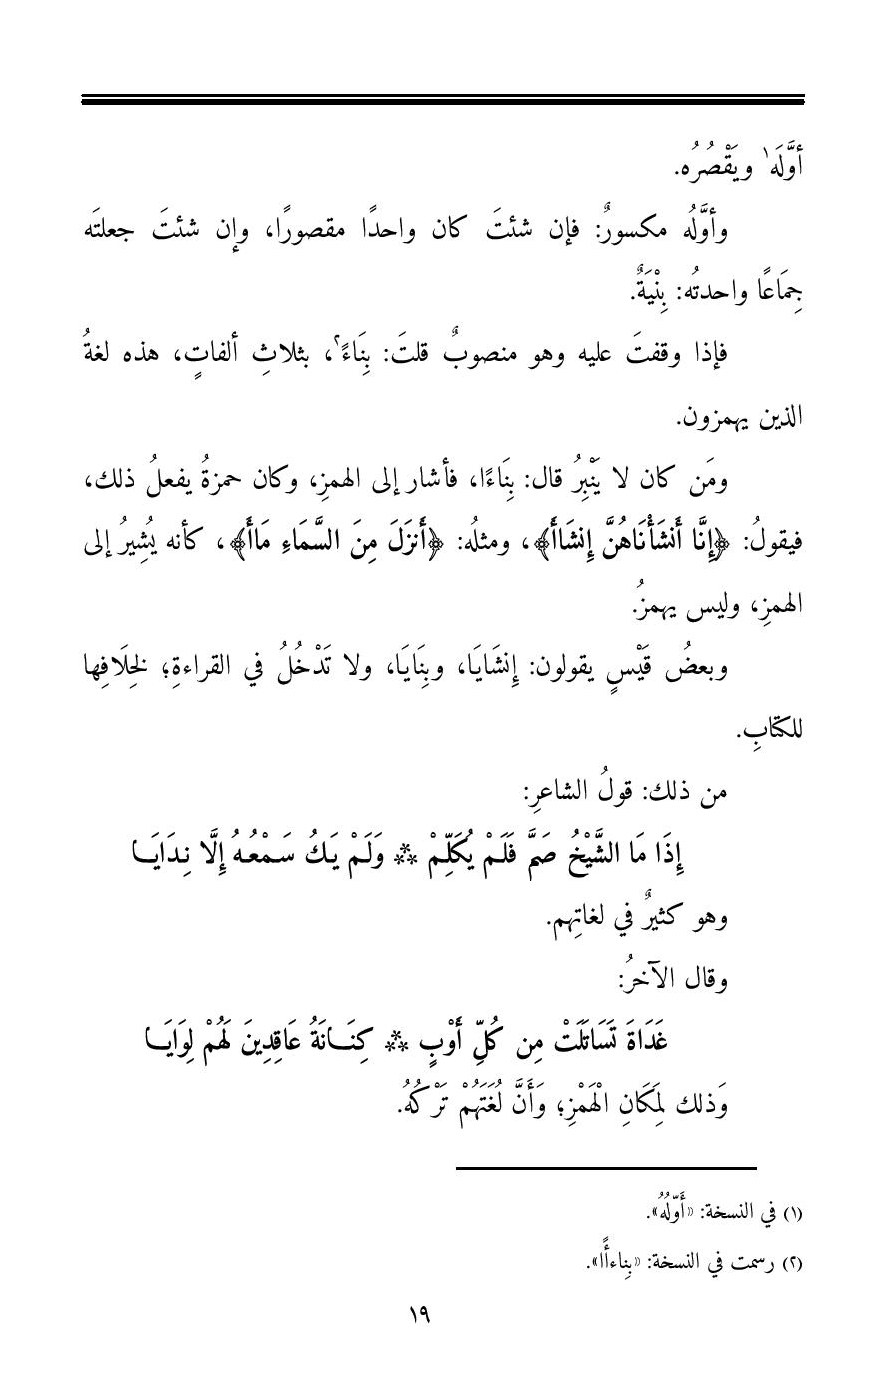 أوَّلَه١ ويَقْصُرُه.
وأوَّلُه مكسورٌ: فإن شئتَ كان واحدًا مقصورًا، وإن شئتَ جعلتَه
جِمَاعًا واحدتُه: بِنْيَةٌ.
فإذا وقفتَ عليه وهو منصوبٌ قلتَ: بِنَاءً٢، بثلاثِ ألفاتٍ، هذه لغةُ
الذين يهمزون.
ومَن كان لا يَنْبِرُ قال: بِنَاءًا، فأشار إلى الهمزِ، وكان حمزةُ يفعلُ ذلك،
فيقولُ: ﴿إِنَّا أَنشَأْنَاهُنَّ إِنشَاأَ﴾، ومثلُه: ﴿أَنزَلَ مِنَ السَّمَاءِ مَاأَ﴾، كأنه يُشِيرُ إلى
الهمزِ، وليس يهمزُ.
وبعضُ قَيْسٍ يقولون: إِنشَايَا، وبِنَايَا، ولا تَدْخُلُ في القراءةِ؛ لِخِلَافِها
للكتابِ.
من ذلك: قولُ الشاعرِ:
إِذَا مَا الشَّيْخُ صَمَّ فَلَمْ يُكَلِّمْ ** وَلَمْ يَكُ سَمْعُهُ إِلَّا نِدَايَا
وهو كثيرٌ في لغاتِهم.
وقال الآخرُ:
غَدَاةَ تَسَاتَلَتْ مِن كُلِّ أَوْبٍ ** كِنَانَةُ عَاقِدِينَ لَهُمْ لِوَايَا
وَذلك لِمَكَانِ الْهَمْزِ؛ وَأَنَّ لُغَتَهُمْ تَرْكُهُ.
(١) في النسخة: «أَوّلُهُ».
(٢) رسمت في النسخة: «بِناءأًا».
١٩